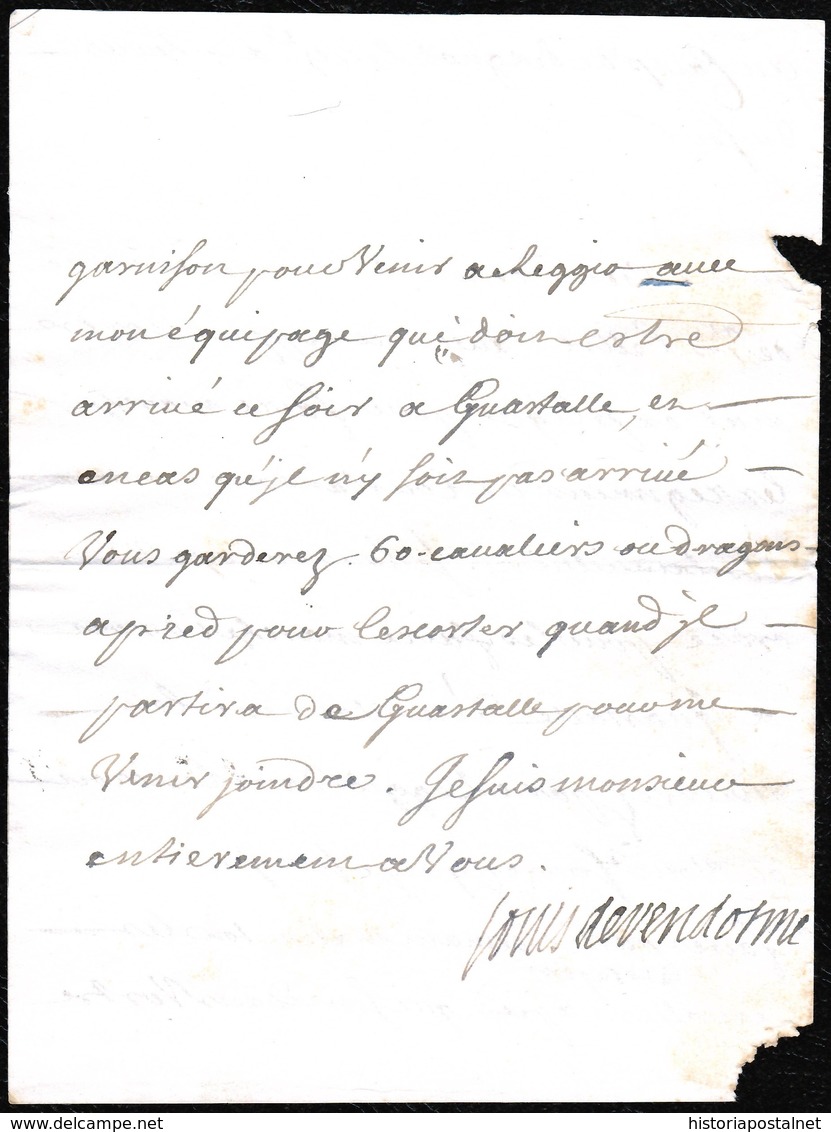 garnison pour Venir a Reggio avec
mon équipage qui doit estre
arrivé ce soir a Guastalle, en
en cas qu'jl n'y soit pas arrivé
Vous garderez 60 cavaliers ou dragons
a pied pour l'escorter quand jl
partira de Guastalle pour me
Venir joindre. Je suis monsieur
entierement a Vous.
Louis de vendosme
historiapostalnet